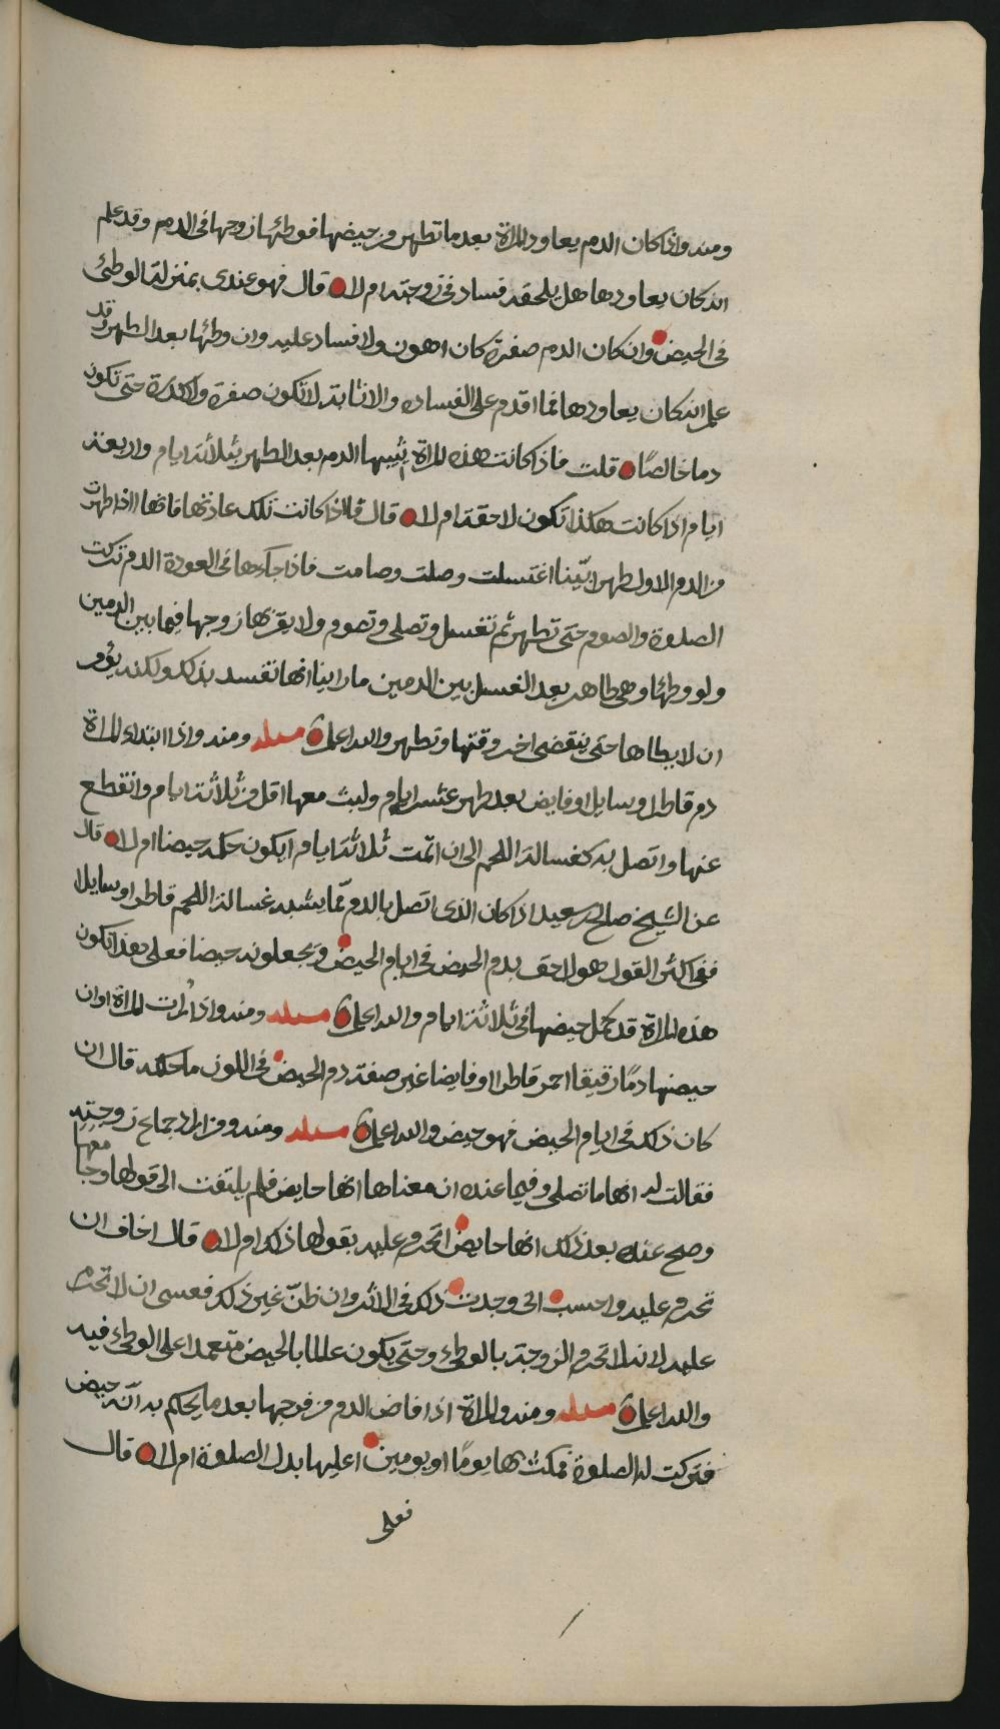 ومنه واذا كان الدم يعاود المراة بعد ما تطهر من حيضها فوطئها زوجها في الدم وقد علم
انه كان يعاودها هل يلحقه فساد في زوجته ام لا قال فهو عندي بمنزلة الوطئ
في الحيض وان كان الدم صفرة كان اهون ولا فساد عليه وان وطئها بعد الطهر وقد
علم انه كان يعاودها فما اقدم على الفساده والاثابة لا تكون صفرة ولا كدرة حتى تكون
دما خالصًا قلت فاذا كانت هذه المراة يثيبها الدم بعد الطهر بثلاثة ايام واربعة
ايام اذا كانت هكذا تكون لاحقة ام لا قال اذا كانت تلك عادتها فانها اذا طهرت
من الدم الاول طهرا بيّنا اغتسلت وصلت وصامت فاذا جاءها في العودة الدم تركت
الصلوة والصوم حتى تطهر ثم تغسل وتصلي وتصوم ولا يقربها زوجها فيما بين الدمين
ولو وطئها وهي طاهر بعد الغسل بين الدمين ما راينا انها تفسد بذلك ولكنه يؤمر
ان لا يطاها حتى ينقضي اخر وقتها وتطهر والله اعلم مسئلة ومنه واذا ابتداء المراة
دم قاطر او سايل او فايض بعد طهر عشر ايام ولبث معها اقل من ثلاثة ايام وانقطع
عنها واتصل به كغسالة اللحم الى ان اتمت ثلاثة ايام ايكون حكمه حيضا ام لا قال
عن الشيخ صالح بن سعيد اذا كان الذي اتصل بالدم مما يشبه غسالة اللحم قاطر او سايلا
ففي اكثر القول هو لاحق بدم الحيض في ايام الحيض ويجعلونه حيضا فعلى هذا تكون
هذه المراة قد كمل حيضها في ثلاثة ايام والله اعلم مسئلة ومنه واذا رات المراة اوان
حيضها دمًا رقيقا احمر قاطرا او فايضا غير صفة دم الحيض في اللون ما حكمه قال ان
كان ذلك في ايام الحيض فهو حيض والله اعلم مسئلة ومنه ومن اراد جماع زوجته
فقالت له انها ما تصلي وفيما عنده ان معناها انها حايض فلم يلتفت الى قولها وجامعها
وصح عنده بعد ذلك انها حايض اتحرم عليه بقولها ذلك ام لا قال اخاف ان
تحرم عليه واحسب اني وجدت ذلك في الاثر وان ظنّ غير ذلك فعسى ان لا تحرم
عليه لانه لا تحرم الزوجة بالوطئ وحتى يكون عالما بالحيض متعمدا على الوطئ فيه
والله اعلم مسئلة ومنه والمراة اذا فاض الدم من فرجها بعد ما يحكم به انّه حيض
فتركت له الصلوة فمكث بها يومًا او يومين اعليها بدل الصلوة ام لا قال
فعلى